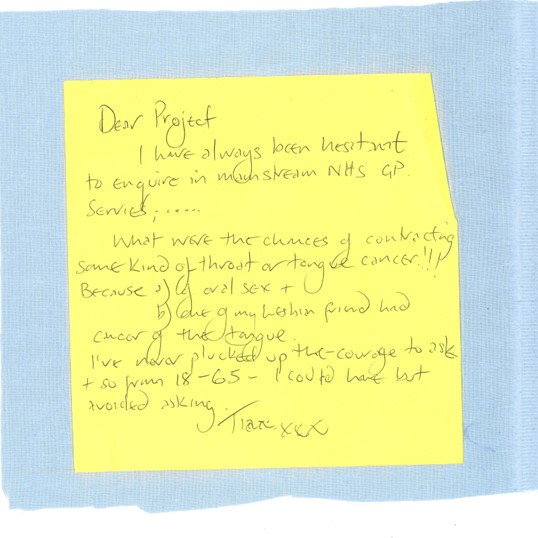 Dear Project
I have always been hesitant
to enquire in mainstream NHS GP.
Services;.....
What were the chances of contracting
some kind of throat or tongue cancer!!!
Because a) of oral sex +
b) one of my Lesbian friend had
cancer of the tongue.
I've never plucked up the courage to ask
+ so from 18-65 - I could have but
avoided asking.
xxx